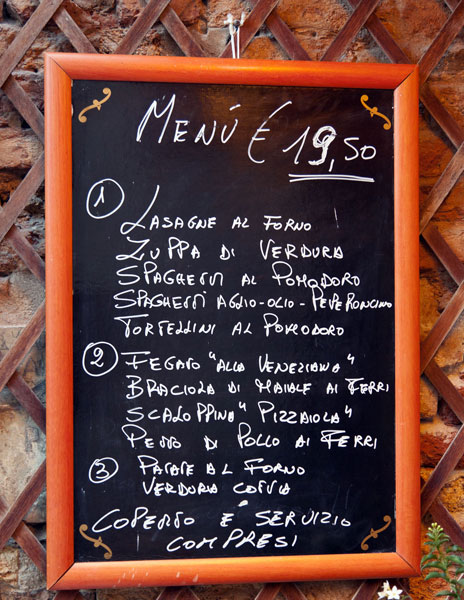 MENÚ € 19,50
1 LASAGNE AL FORNO
ZUPPA DI VERDURA
SPAGHETTI AL POMODORO
SPAGHETTI AGLIO-OLIO-PEPERONCINO
TORTELLINI AL POMODORO
2 FEGATO "ALLA VENEZIANA"
BRACIOLA DI MAIALE AI FERRI
SCALOPPINA "PIZZAIOLA"
PETTO DI POLLO AI FERRI
3 PATATE AL FORNO
VERDURA COTTA
COPERTO E SERVIZIO
COMPRESI